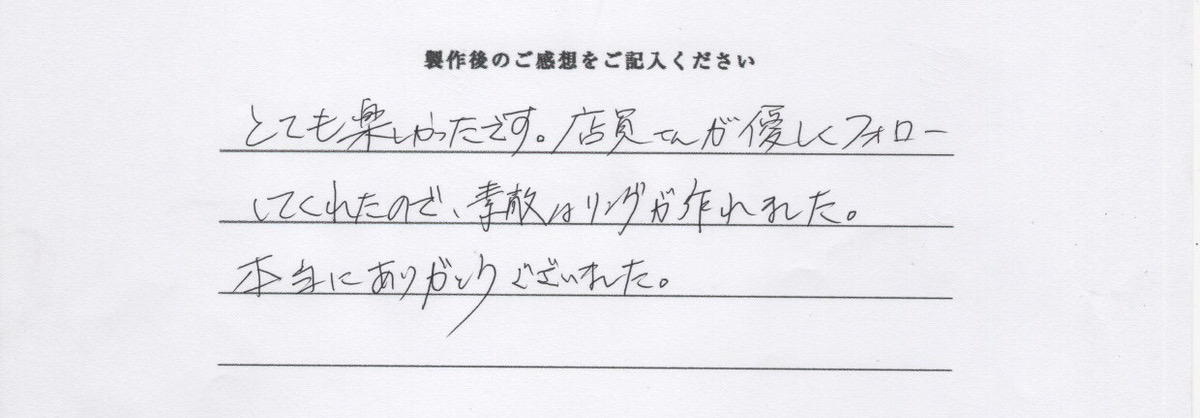 製作後のご感想をご記入ください
とても楽しかったです。店員さんが優しくフォロー
してくれたので、素敵なリングが作れました。
本当にありがとうございました。